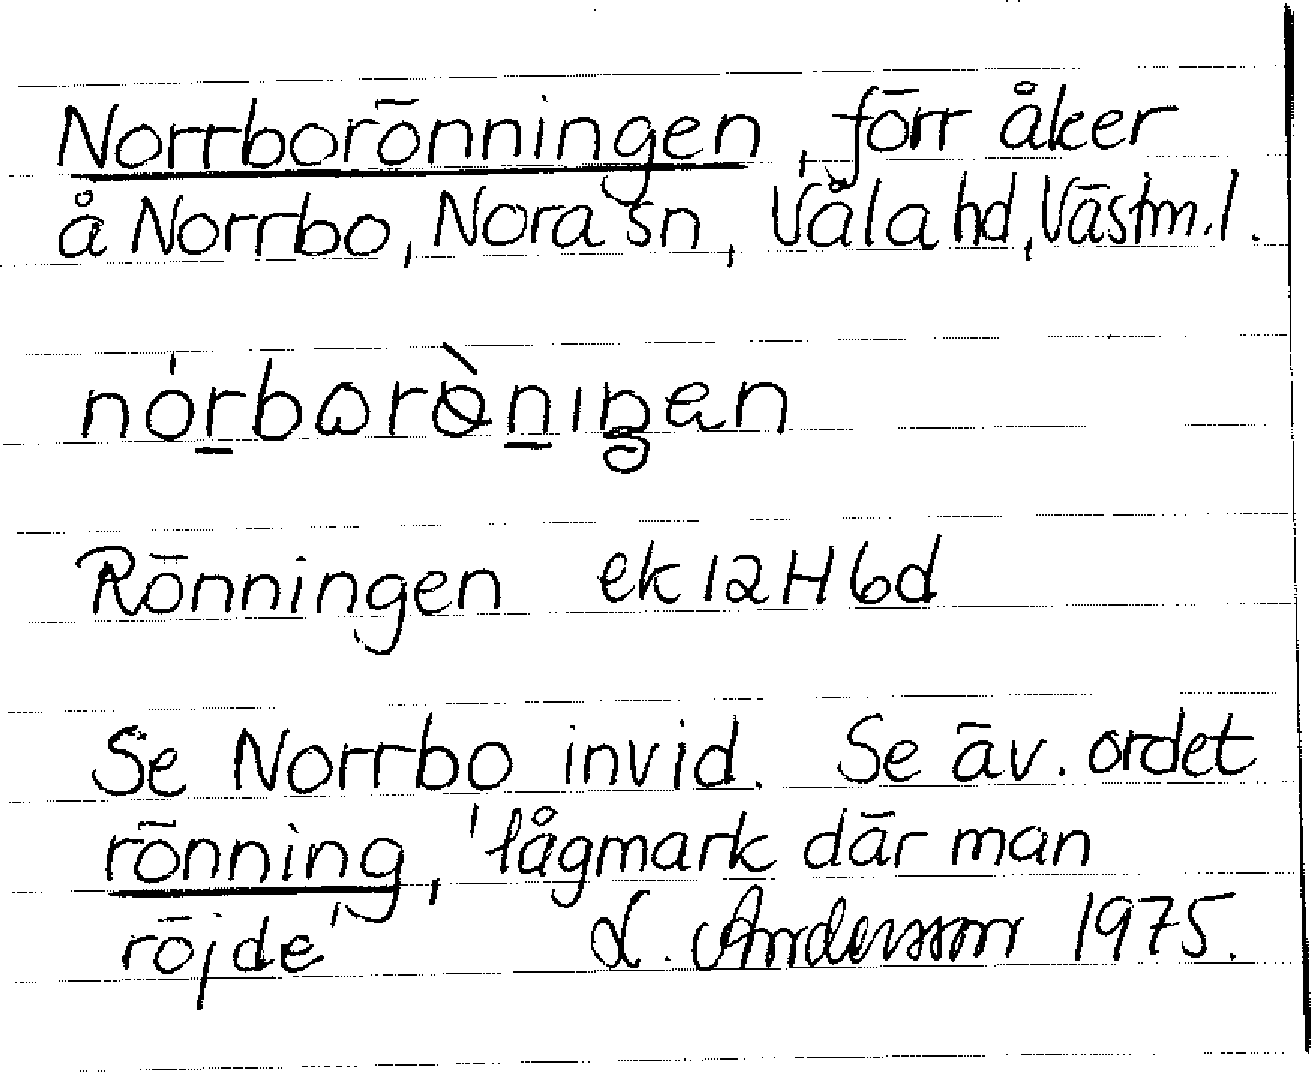 Norrborönningen, förr åker
å Norrbo, Nora sn, Våla hd, Västm.l.
Rönningen ek 12H6d
Se Norrbo invid. Se äv. ordet
rönning, 'lågmark där man
röjde' L. Andersson 1975.